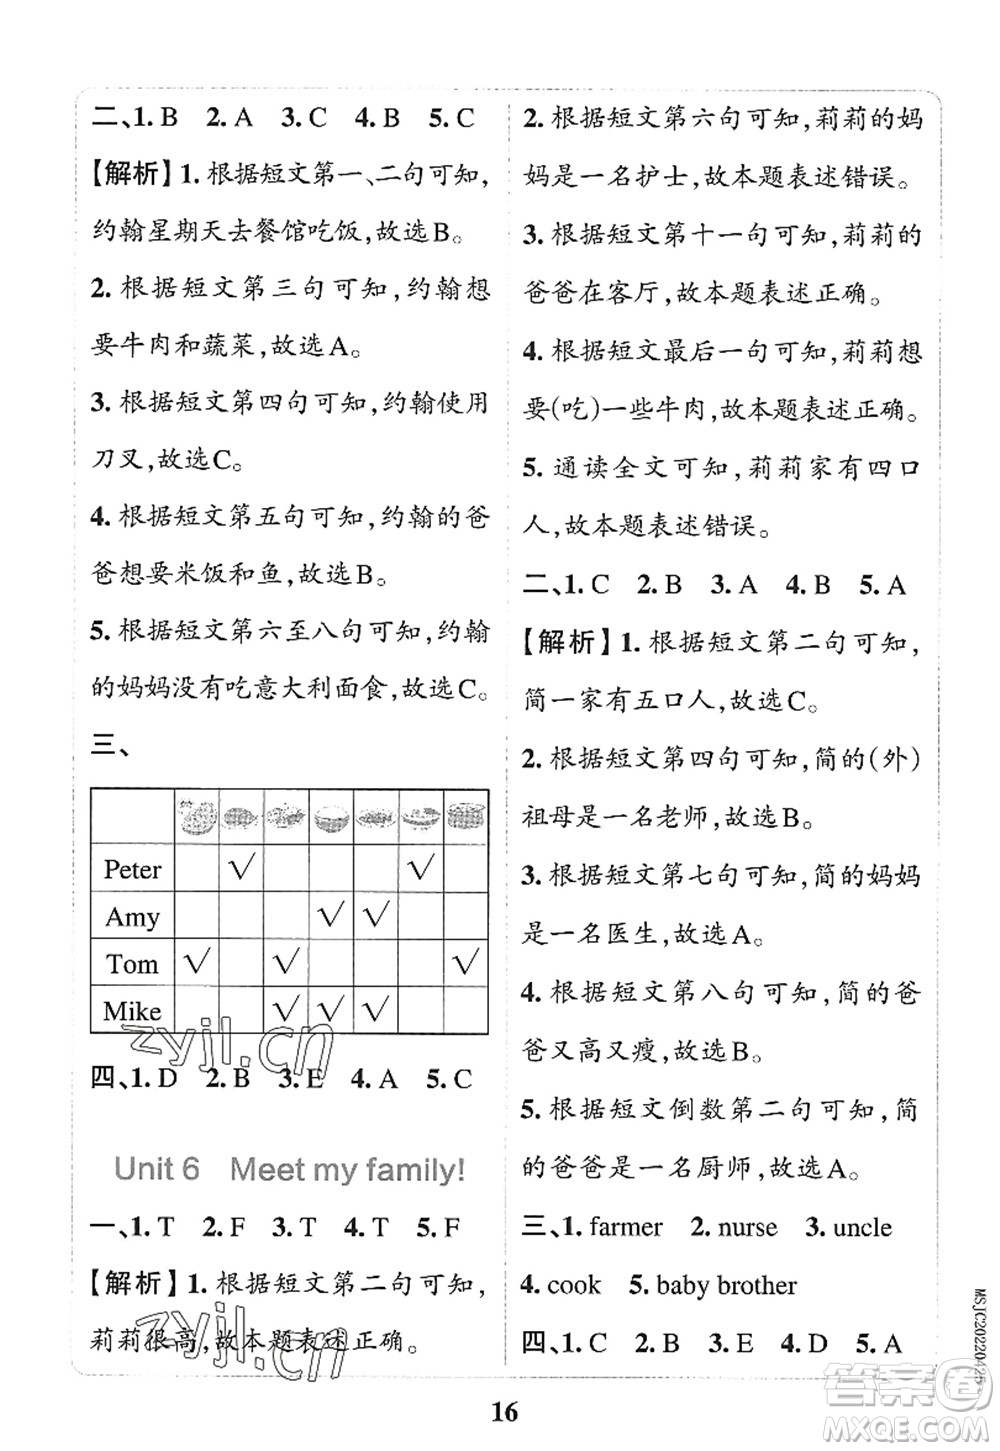 二、1. B 2. A 3. C 4. B 5. C
【解析】1. 根据短文第一、二句可知,
约翰星期天去餐馆吃饭,故选B。
2. 根据短文第三句可知,约翰想
要牛肉和蔬菜,故选A。
3. 根据短文第四句可知,约翰使用
刀叉,故选C。
4. 根据短文第五句可知,约翰的爸
爸想要米饭和鱼,故选B。
5. 根据短文第六至八句可知,约翰
的妈妈没有吃意大利面食,故选C。
三、
Peter √ √
Amy √ √
Tom √ √ √
Mike √ √ √
四、1. D 2. B 3. E 4. A 5. C
Unit 6 Meet my family!
一、1. T 2. F 3. T 4. T 5. F
【解析】1. 根据短文第二句可知,
莉莉很高,故本题表述正确。
2. 根据短文第六句可知,莉莉的妈
妈是一名护士,故本题表述错误。
3. 根据短文第十一句可知,莉莉的
爸爸在客厅,故本题表述正确。
4. 根据短文最后一句可知,莉莉想
要(吃)一些牛肉,故本题表述正确。
5. 通读全文可知,莉莉家有四口
人,故本题表述错误。
二、1. C 2. B 3. A 4. B 5. A
【解析】1. 根据短文第二句可知,
简一家有五口人,故选C。
2. 根据短文第四句可知,简的(外)
祖母是一名老师,故选B。
3. 根据短文第七句可知,简的妈妈
是一名医生,故选A。
4. 根据短文第八句可知,简的爸
爸又高又瘦,故选B。
5. 根据短文倒数第二句可知,简
的爸爸是一名厨师,故选A。
三、1. farmer 2. nurse 3. uncle
4. cook 5. baby brother
四、1. C 2. B 3. E 4. D 5. A
16
MSJC20220425
zyjl.cn
zyjl.cn
答案圈
MXQE.COM